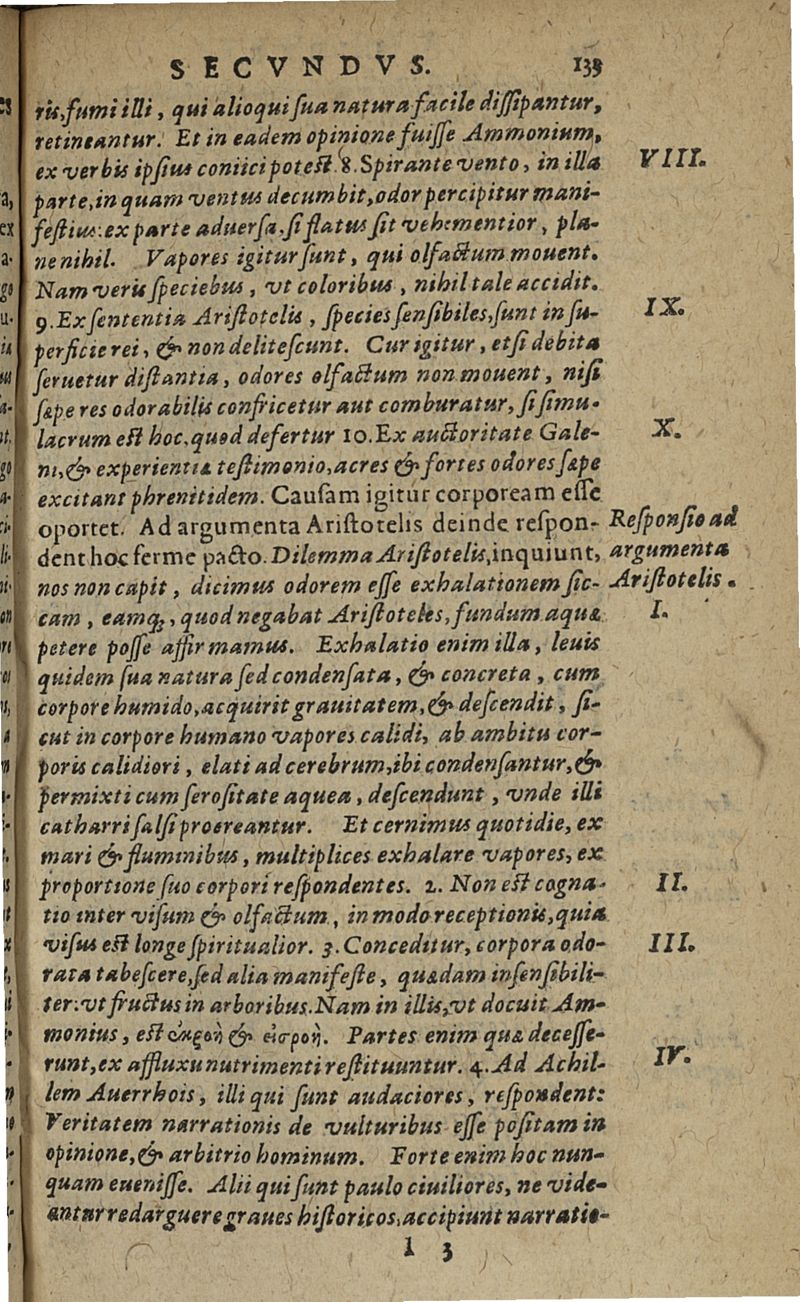 SECVNDVS. 133
ris, fumi illi, qui alioqui sua natura facile dissipantur,
retineantur. Et in eadem opinione fuisse Ammonium,
ex verbis ipsius coniici potest. 8. Spirante vento, in illa VIII.
parte, in quam ventus decumbit, odor percipitur mani-
festius: ex parte aduersa, si flatus sit vehementior, pla-
ne nihil. Vapores igitur sunt, qui olfactum mouent.
Nam veris speciebus, vt coloribus, nihil tale accidit.
9. Ex sententia Aristotelis, species sensibiles, sunt in su- IX.
perficie rei, & non delitescunt. Cur igitur, etsi debita
seruetur distantia, odores olfactum non mouent, nisi
sæpe res odorabilis confricetur aut comburatur, si simu-
lacrum est hoc, quod defertur 10. Ex auctoritate Gale- X.
ni, & experientiæ testimonio, acres & fortes odores sæpe
excitant phrenitidem. Causam igitur corpoream esse
oportet. Ad argumenta Aristotelis deinde respon- Responsio ad
dent hoc ferme pacto. Dilemma Aristotelis, inquiunt, argumenta
nos non capit, dicimus odorem esse exhalationem sic- Aristotelis.
cam, eamq́;, quod negabat Aristoteles, fundum aquæ I.
petere posse affirmamus. Exhalatio enim illa, leuis
quidem sua natura sed condensata, & concreta, cum
corpore humido, acquirit grauitatem, & descendit, si-
cut in corpore humano vapores calidi, ab ambitu cor-
poris calidiori, elati ad cerebrum, ibi condensantur, &
permixti cum serositate aquea, descendunt, vnde illi
catharri salsi procreantur. Et cernimus quotidie, ex
mari & fluminibus, multiplices exhalare vapores, ex
proportione suo corpori respondentes. 2. Non est cogna- II.
tio inter visum & olfactum, in modo receptionis, quia
visus est longe spiritualior. 3. Conceditur, corpora odo- III.
rata tabescere, sed alia manifeste, quædam insensibili-
ter: vt fructus in arboribus. Nam in illis, vt docuit Am-
monius, est ἐκροὴ & εἰσροὴ. Partes enim quæ decesse-
runt, ex affluxu nutrimenti restituuntur. 4. Ad Achil- IV.
lem Auerrhois, illi qui sunt audaciores, respondent:
Veritatem narrationis de vulturibus esse positam in
opinione, & arbitrio hominum. Forte enim hoc nun-
quam euenisse. Alii qui sunt paulo ciuiliores, ne vide-
antur redarguere graues historicos, accipiunt narratio-
l 3